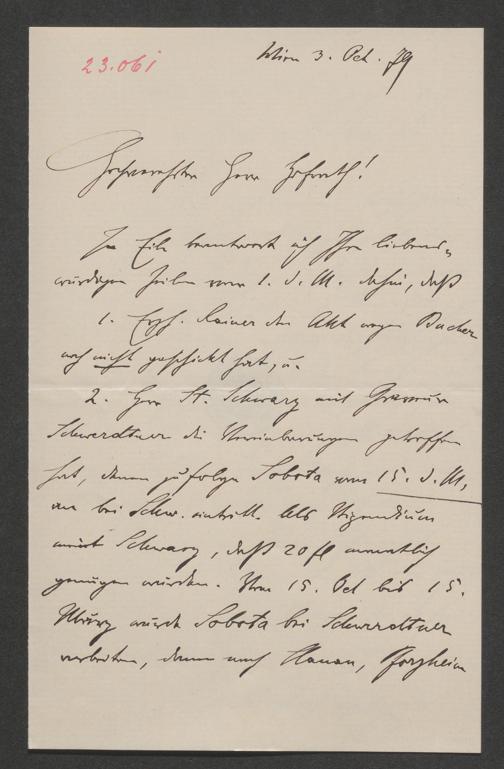 23.061
Wien 3. Oct. 79
Hochverehrter Herr Hofrath!
In Eile beantworte ich Ihre liebens-
würdigen Zeilen vom 1. d. M. dahin, daß
1. Erzh. Rainer den Akt wegen Bucher
noch nicht geschickt hat, u.
2. Herr St. Schwarz mit Graveur
Schwerdtner die Vereinbarungen getroffen
hat, denen zufolge Sobota vom 15. d. M.
an bei Schw. eintritt. Als Stipendium
meint Schwarz, daß 20 fl monatlich
genügen würden. Vom 15. Oct bis 15.
März würde Sobota bei Schwerdtner
arbeiten, dann nach Hanau, Pforzheim